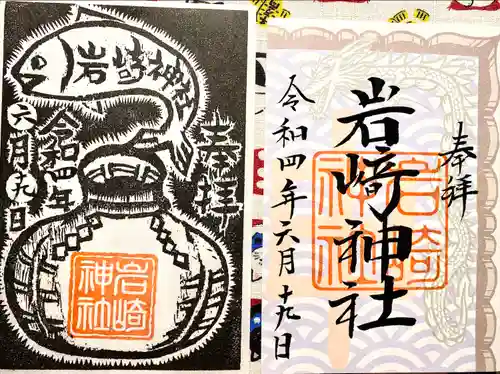 岩崎神社
奉拝
令和四年
六月十九日
岩崎
神社
奉拝
岩崎神社
令和四年六月十九日
岩崎
神社